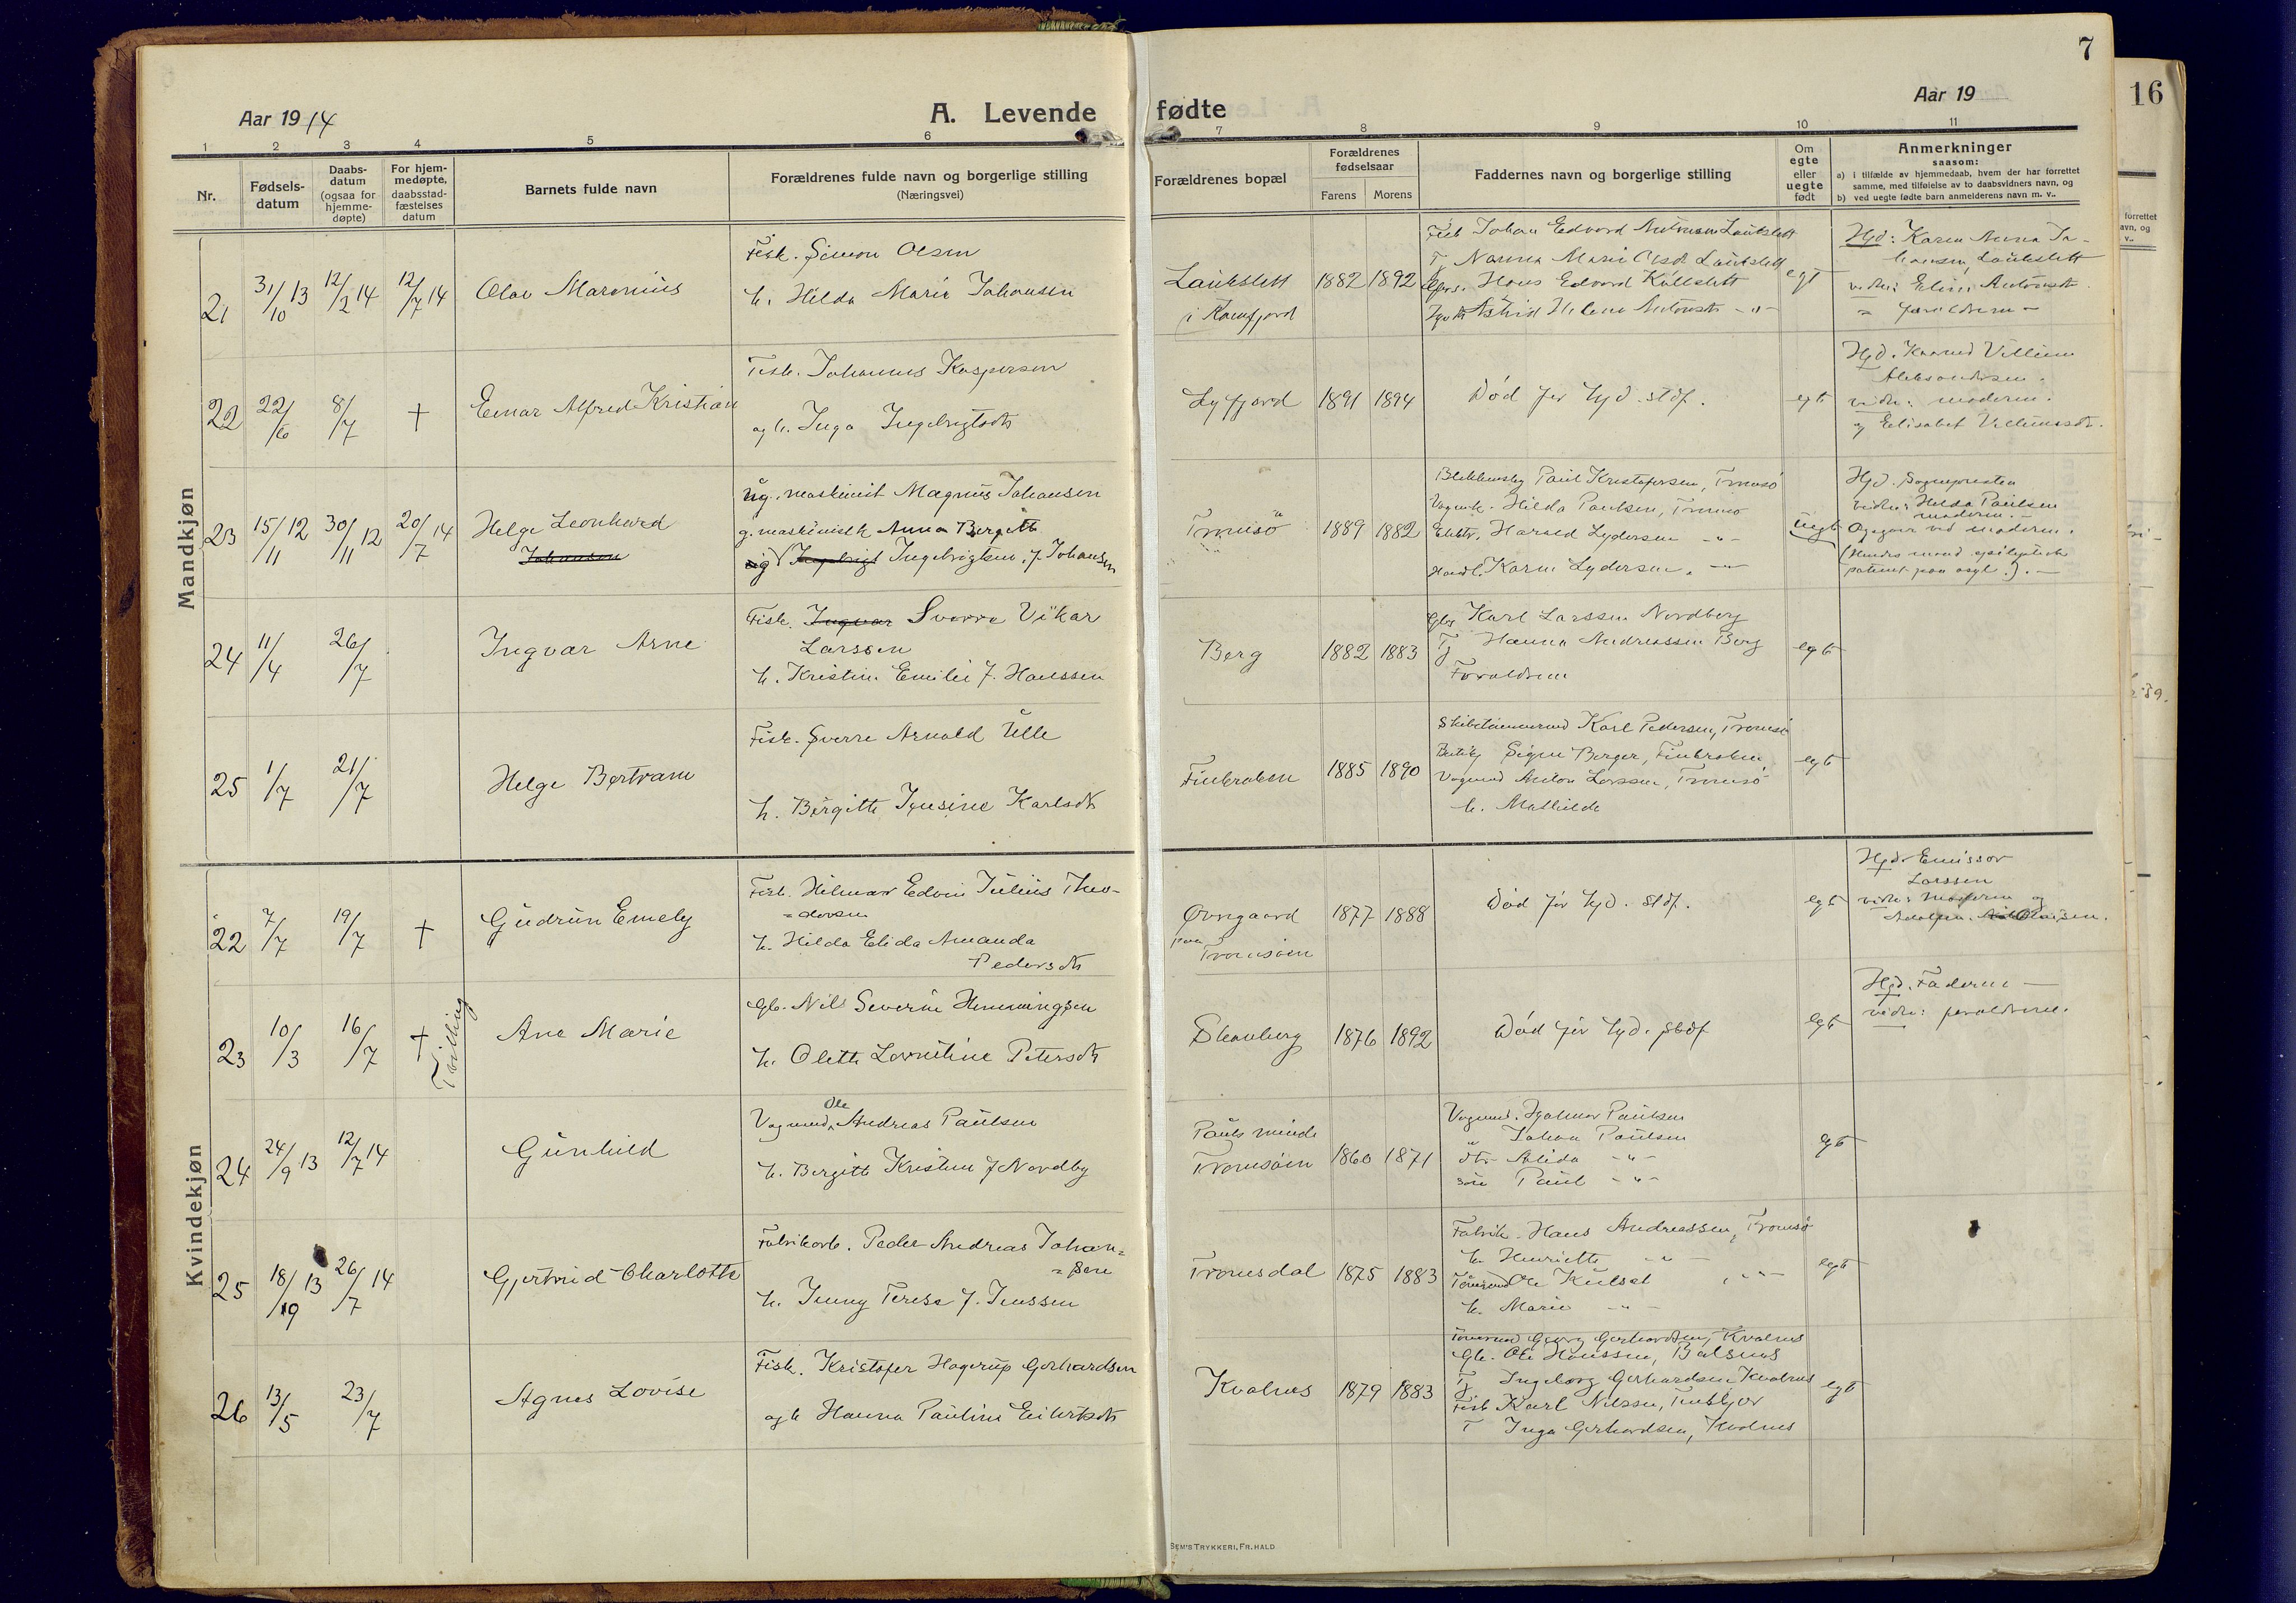 7
16
Aar 1914
A. Levende fødte
Aar 19
1 2 3 4 5 6 7 8 9 10 11
Nr.
Fødsels-
datum
Daabs-
datum
(ogsaa for
hjemme-
døpte)
For hjem-
medøpte,
daabsstad-
fæstelses
datum
Barnets fulde navn
Forældrenes fulde navn og borgerlige stilling
(Næringsvei)
Forældrenes bopæl
Forældrenes
fødselsaar
Farens Morens
Faddernes navn og borgerlige stilling
Om
egte
eller
uegte
født
Anmerkninger
saasom:
a) i tilfælde av hjemmedaab, hvem der har forrettet
samme, med tilføielse av to daabsvidners navn, og
b) ved uegte fødte barn anmelderens navn m. v..
forrettet
avn, og
v..
Mandkjøn
21 31/10 13 12/2 14 12/7 14 Olav Marenius
Fisk. Simon Olsen
h. Hilda Marie Johansen
Laukslett
i Ramfjord
1882 1892
Fisk Johan Edvard Antonsen Laukslett
T. Nanna Marie Olsdt Laukslett
Hans Edvard Kullslett
Astrid Helene Antonsdt - " -
egt
Hjd: Karen Anna Jo-
hansen, Laukslett
vidn: Eline Antonsdt.
" forældrene -
22 22/6 8/7 † Einar Alfred Kristian
Fisk. Johannes Kaspersen
og h. Inga Ingebrigtsdt
Lyfjord 1891 1894
Død før hjd. stdf.
egt
Hjd. Konrad Villium
Aleksandersen.
vidn: moderen.
og Elisabet Villumsdt.
23 15/11 12 30/11 12 20/7 14 Helge Leonhard
Johansen
ug. maskinist Magnus Johansen
g. maskinistk Anna Bergitte
Ingebrigt Ingebrigtsen, f. Johansen
Tromsø 1889 1882
Paul Kristofersen, Tromsø
Hilda Paulsen, Tromsø
Elektr. Harald Lydersen - " -
Handl. Karen Lydersen. - " -
uegt
Hjd. Sognepresten
vidn: Hilda Paulsen
moderen.
Opgaver ved moderen.
(Hendes mand epileptisk
patient paa asyl.). -
24 11/4 26/7 Ingvar Arne
Fisk. Ingvar Sverre Vikar
Larssen
h. Kristine Emilie f. Hanssen
Berg 1882 1883
Karl Larssen Nordberg
T. Hanna Andreassen Berg
Forældrene
egt
25 1/7 21/7 Helge Bertram
Fisk. Sverre Arnold Ulle
h. Bergitte Jensine Karlsdt
Finkroken 1885 1890
Skibstømmermd Karl Pedersen, Tromsø
Signe Berger, Finkroken,
Vognmd Anton Larssen, Tromsø
h. Mathilde
egt
Kvindekjøn
22 7/7 19/7 † Gudrun Emely
Fisk. Hilmar Edvin Julius Theo-
= dorsen
h. Hilda Elida Amanda
Pedersdt
Ørnegaard
paa
Tromsøen
1877 1888
Død før hjd. stdf.
egt
Hjd. Emissær
Larssen
vidn: Moderen og
23 10/3 16/7 † Tvilling Ane Marie
Gb. Nils Severin Hemmingsen
h. Olette Lorentine Petersdt
Skavberg 1876 1892
Død før hjd. stdf
egt
Hjd. Faderen -
vidn: forældrene.
24 24/9 13 12/7 14 Gunhild
Vognmd. Ole Andreas Paulsen
h. Bergitte Kristine f Nordby
Pauls minde
Tromsøen
1860 1871
Vognmd. Hjalmar Paulsen
" Johan Paulsen
dtr Alida - " -
søn Paul - " -
egt
25 18/9 13 26/7 14 Gjertrud Charlotte
Fabrikarb. Peder Andreas Johan=
= sen
h. Jenny Terese f. Jenssen
Tromsdal 1875 1883
Fabrik. Hans Andreassen, Tromsø
h. Henriette - " -
Ole Kulset - " -
h. Marie - " -
egt
26 13/5 23/7 Agnes Lovise
Fisk. Kristofer Hagerup Gerhardsen
og h Hanna Pauline Eilertsdt
Kvalnes 1879 1883
Georg Gerhardsen, Kvalnes
Gb. Ole Hanssen, Balsnes
T. Ingeborg Gerhardsen Kvalnes
Fisk Karl Nilssen,
T Inga Gerhardsen, Kvalnes
egt
SEM'S TRYKKERI, FR. HALD